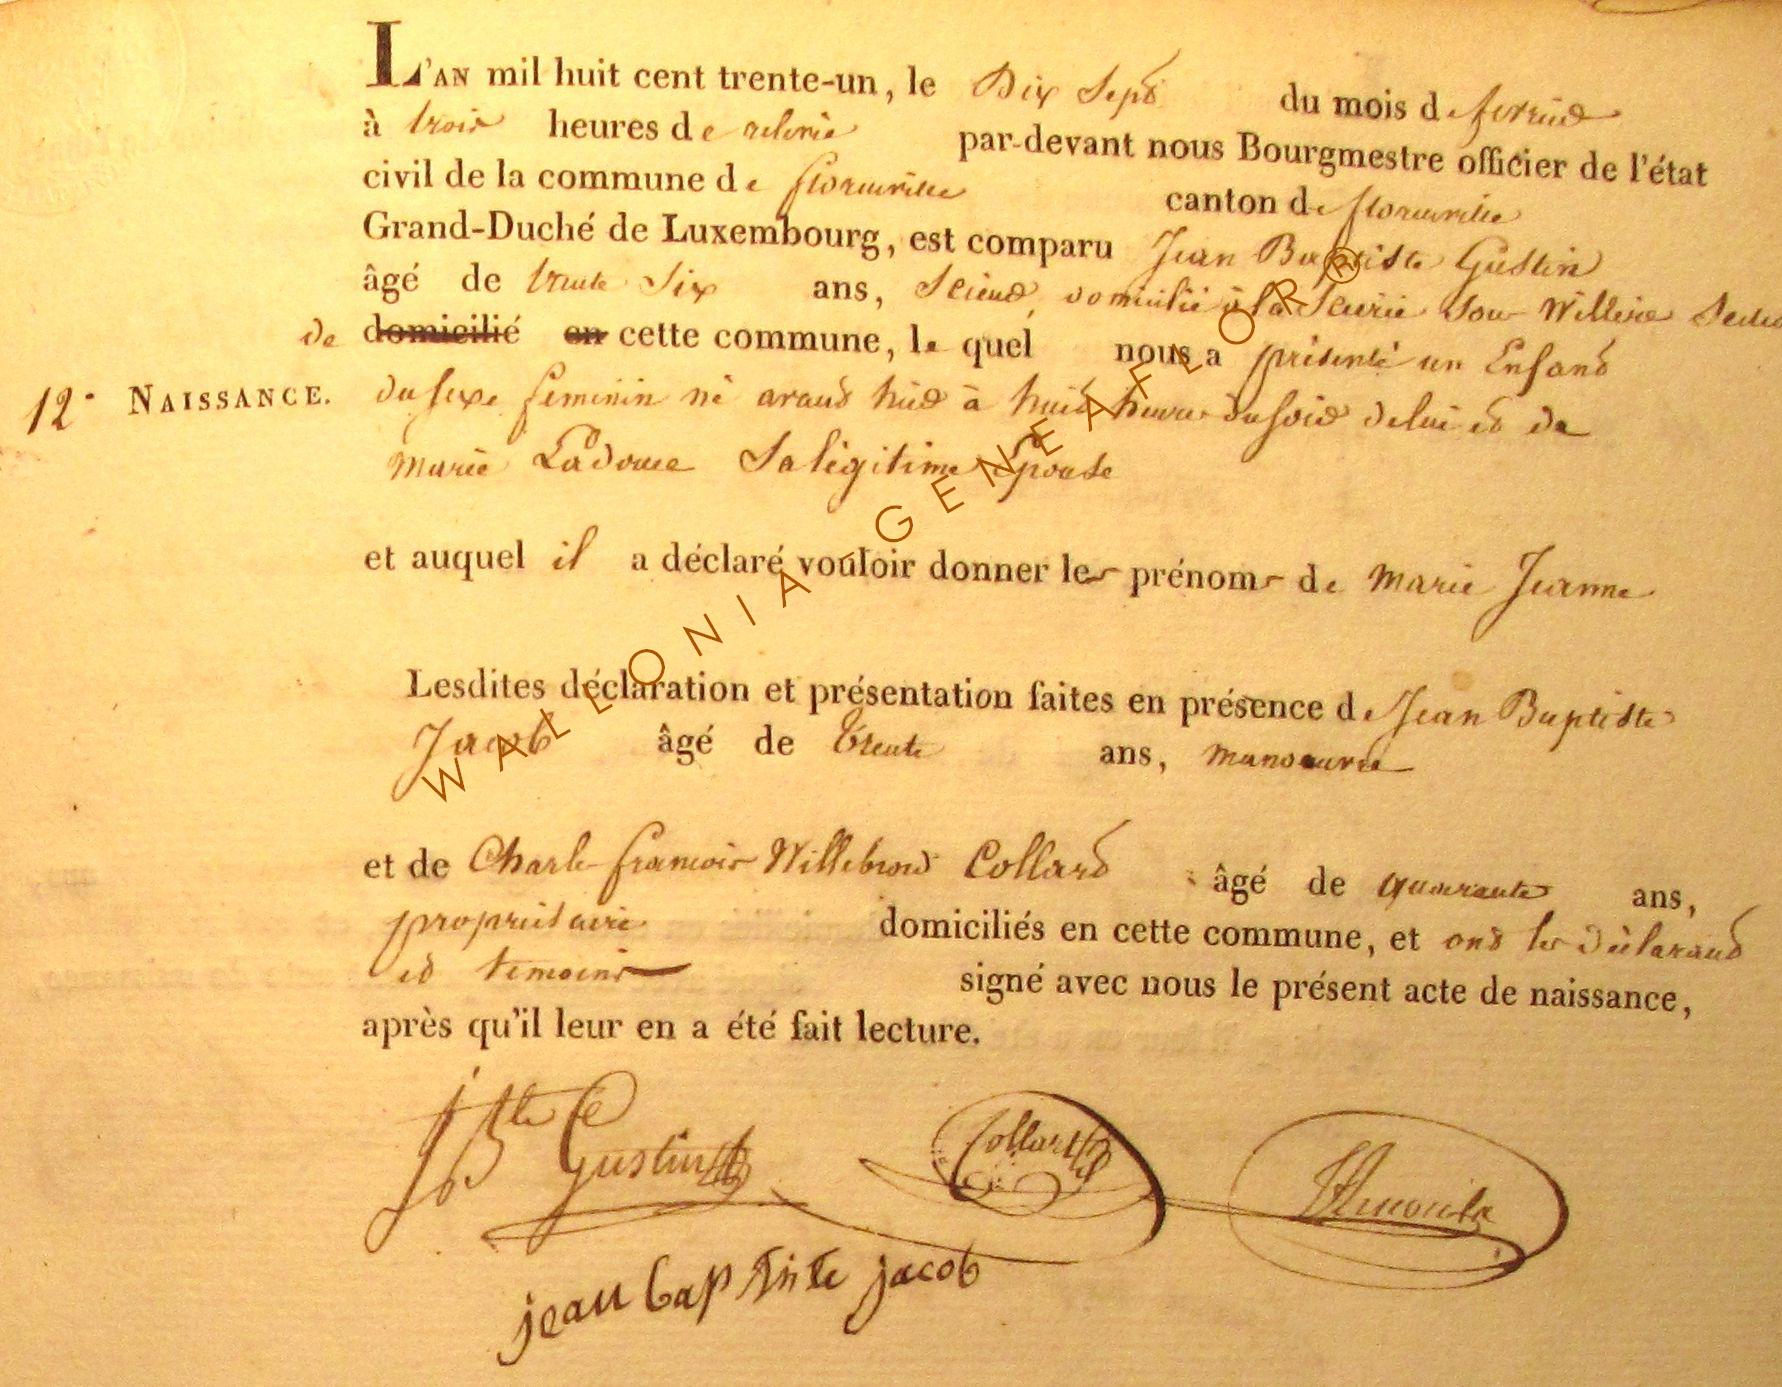 L'AN mil huit cent trente-un, le Dix Sept du mois de fevrier
à trois heures de relevée par-devant nous Bourgmestre officier de l'état
civil de la commune de florenville canton de florenville
Grand-Duché de Luxembourg, est comparu Jean Baptiste Gustin
âgé de trente Six ans, Scieur, domicilié à la Scierie Sou
de domicilié en cette commune, le quel nous a présenté un Enfant
12e NAISSANCE. du sexe feminin né avant hier à huit heures du soir de lui et de
marie Ladouce Sa légitime Epouse
et auquel il a déclaré vouloir donner les prénoms de Marie Jeanne
Lesdites déclaration et présentation faites en présence de Jean Baptiste
Jacob âgé de trente ans, manoeuvre
et de Charle francois Willebrord Collard âgé de quarante ans,
propriétaire domiciliés en cette commune, et ont les déclarant
et temoins signé avec nous le présent acte de naissance,
après qu'il leur en a été fait lecture.
JBte Gustin Collard
jean baptiste jacob
WALLONIA GENEAFLOR®